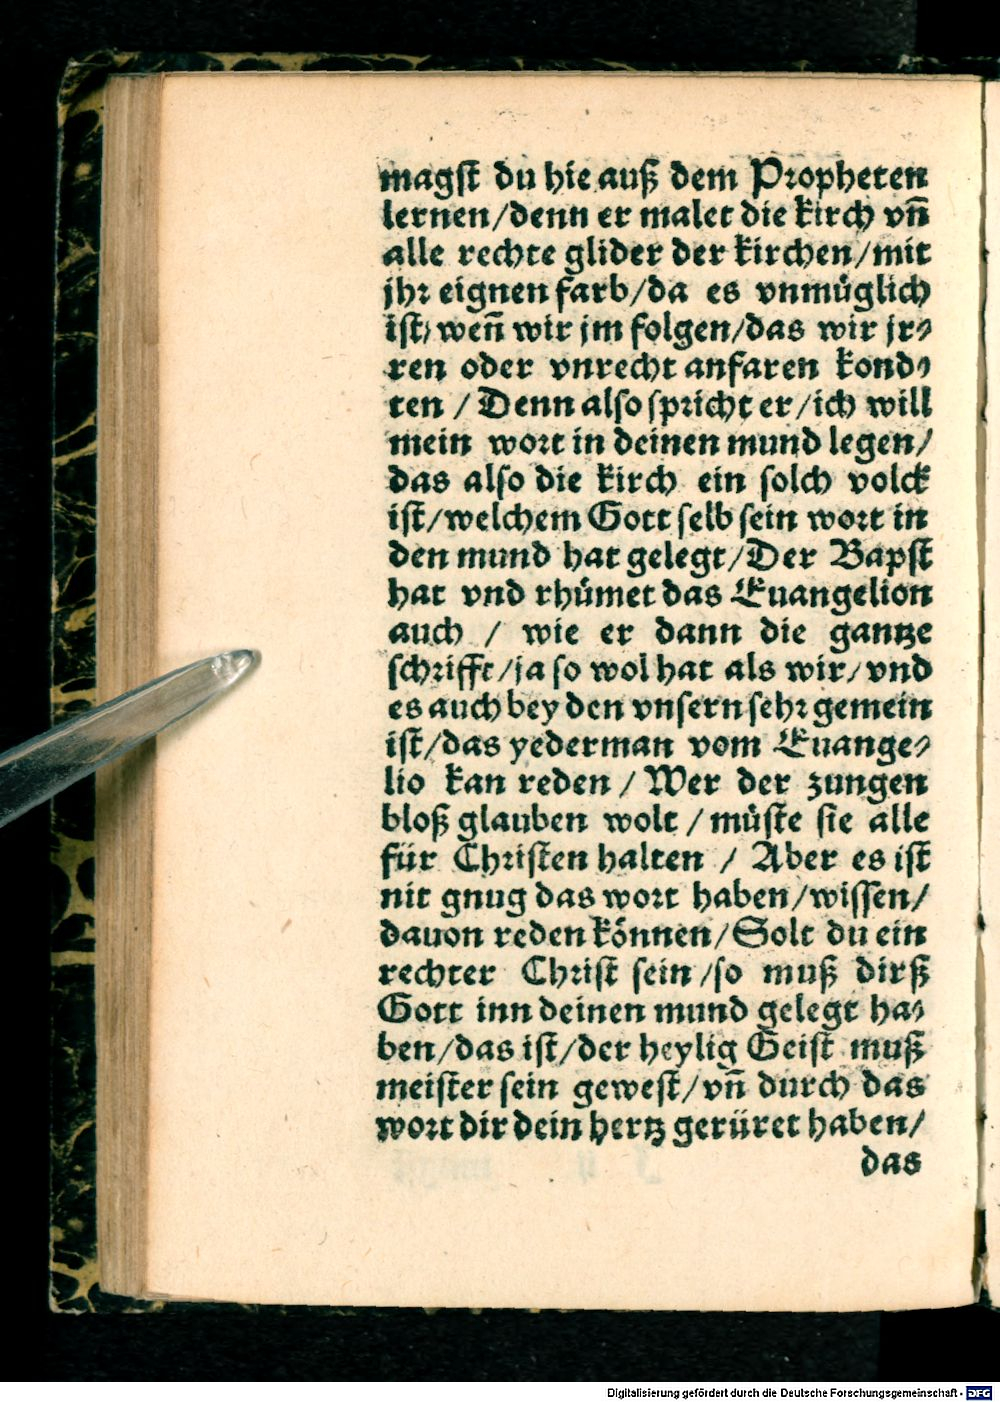 magst du hie auß dem Propheten
lernen/denn er malet die kirch vñ
alle rechte glider der kirchen/mit
jhr eignen farb/da es vnmüglich
ist/weñ wir jm folgen/das wir jr⸗
ren oder vnrecht anfaren kond⸗
ten / Denn also spricht er/ich will
mein wort in deinen mund legen/
das also die kirch ein solch volck
ist/welchem Gott selb sein wort in
den mund hat gelegt/Der Bapst
hat vnd rhümet das Euangelion
auch / wie er dann die gantze
schrifft/ja so wol hat als wir/vnd
es auch bey den vnsern sehr gemein
ist/das yederman vom Euange⸗
lio kan reden / Wer der zungen
bloß glauben wolt / müste sie alle
für Christen halten / Aber es ist
nit gnug das wort haben/wissen/
dauon reden können/Solt du ein
rechter Christ sein/so muß dirß
Gott inn deinen mund gelegt ha⸗
ben/das ist/der heylig Geist muß
meister sein gewest/vñ durch das
wort dir dein hertz gerüret haben/
das
Digitalisierung gefördert durch die Deutsche Forschungsgemeinschaft - DFG